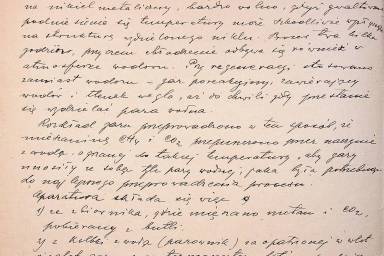 na nikiel metaliczny, bardzo wolno, gdyż gwałtowne
podniesienie się temperatury może szkodliwie wpłynąć
na strukturę wydzielonego niklu. Proces trwa kilka
godzin, przyczem chłodzenie odbywa się również w
atmosferze wodoru. Przy regeneracji stosowano
zamiast wodoru – gaz poreakcyjny, zawierający
wodór i tlenek węgla, aż do chwili gdy przestanie
się wydzielać para wodna.
Rozkład gazu przeprowadzono w ten sposób, że
mieszaninę CH4 i CO2 przepuszczono przez naczynie
z wodą, ogrzaną do takiej temperatury, aby gazy
unosiły ze sobą tle pary wodnej, jaka była potrzebna
do najlepszego przeprowadzenia procesu.
Aparatura składa się więc
1) ze zbiornika, gdzie mięrano metan i CO2,
pobierany z butli.
2) z kolby z wodą (parownik) zaopatrzonej w wlot